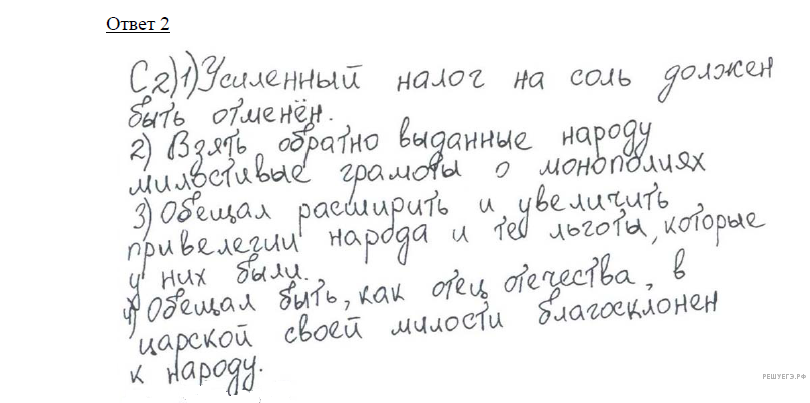 Ответ 2
С2)1) Усиленный налог на соль должен
быть отменён.
2) Взять обратно выданные народу
милостивые грамоты о монополиях
3) Обещал расширить и увеличить
привелегии народа и те льготы, которые
у них были.
4) Обещал быть, как отец отечества, в
царской своей милости благосклонен
к народу.
РЕШУЕГЭ.РФ